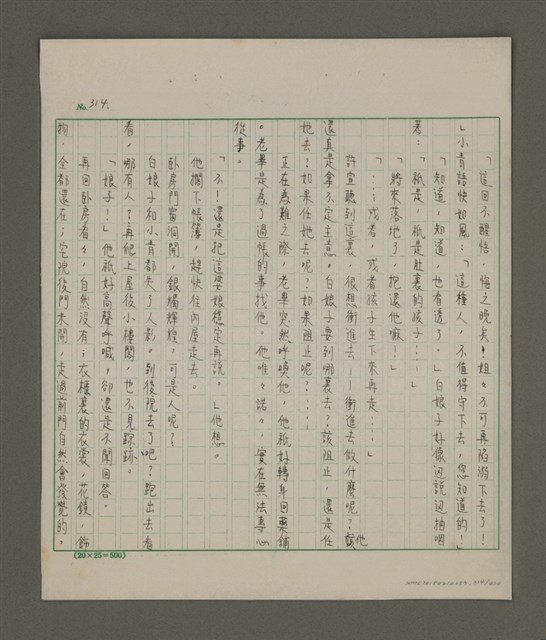 No. 314.
「這回不醒悟，悔之晚矣！姐々不可再陷溺下去了！
」小青語快如風：「這種人，不值得守下去，您知道的！」
「知道，知道，也看透了。」白娘子好像邊說邊抽咽
著：「祇是，祇是肚裏的孩子……」
「躺來落地了，把還他嘛！」
「……或者，或者孩子生下來再走……」
許宣聽到這裏，很想衝進去——衝進去做什麼呢？他
還真是拿不定主意，白娘子要到哪裏去？該阻止，還是任
她去？如果任她去呢？如果阻止呢？……
正在為難之際，老畢突然呼喚他，他祇好轉身回藥鋪
。老畢是為了過帳的事找他。他唯々諾々，實在無法專心
從事。
「不！還是把這婆娘穩定再說。」他想。
他擱下帳簿，趕快往內屋走去。
臥房門窗洞開，銀燭輝煌，可是人呢？
白娘子和小青都失了人影。到後院去了吧？跑出去看
看，哪有人？再爬上屋後小樓閣，也不見蹤跡。
「娘子！」他祇好高聲呼喊，卻還是不聞回答。
再回臥房看々，自然沒有；衣櫃裏的衣裳，花鏡，飾
物，全都還在；宅院後門未開，走過前門自然會發覺的。
(20×25=500)